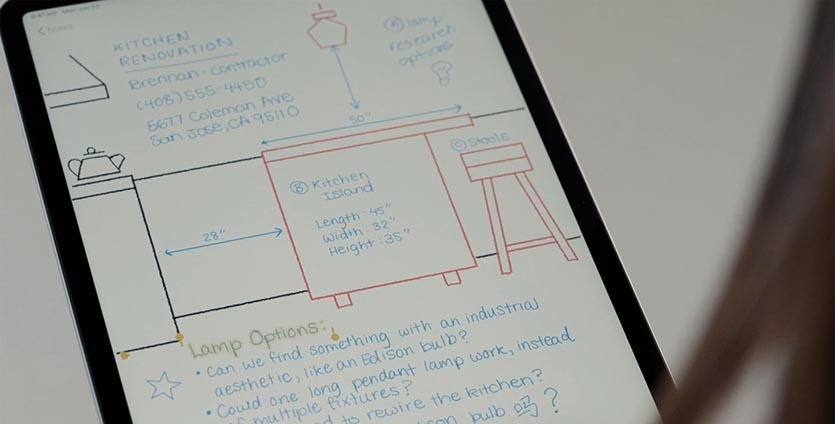 Notes
KITCHEN
RENOVATION
Brennan - contractor
(408) 555-4450
5677 Coleman Ave
San Jose, CA 95110
Ⓐ lamp
research
options
50"
Ⓒ Stools
Ⓑ Kitchen
Island
Length : 45"
Width : 32"
Height : 35"
28"
Lamp Options:
• Can we find something with an industrial
aesthetic, like an Edison bulb?
• Could one long pendant lamp work, instead
of multiple fixtures?
to rewire the kitchen?
bulb
?